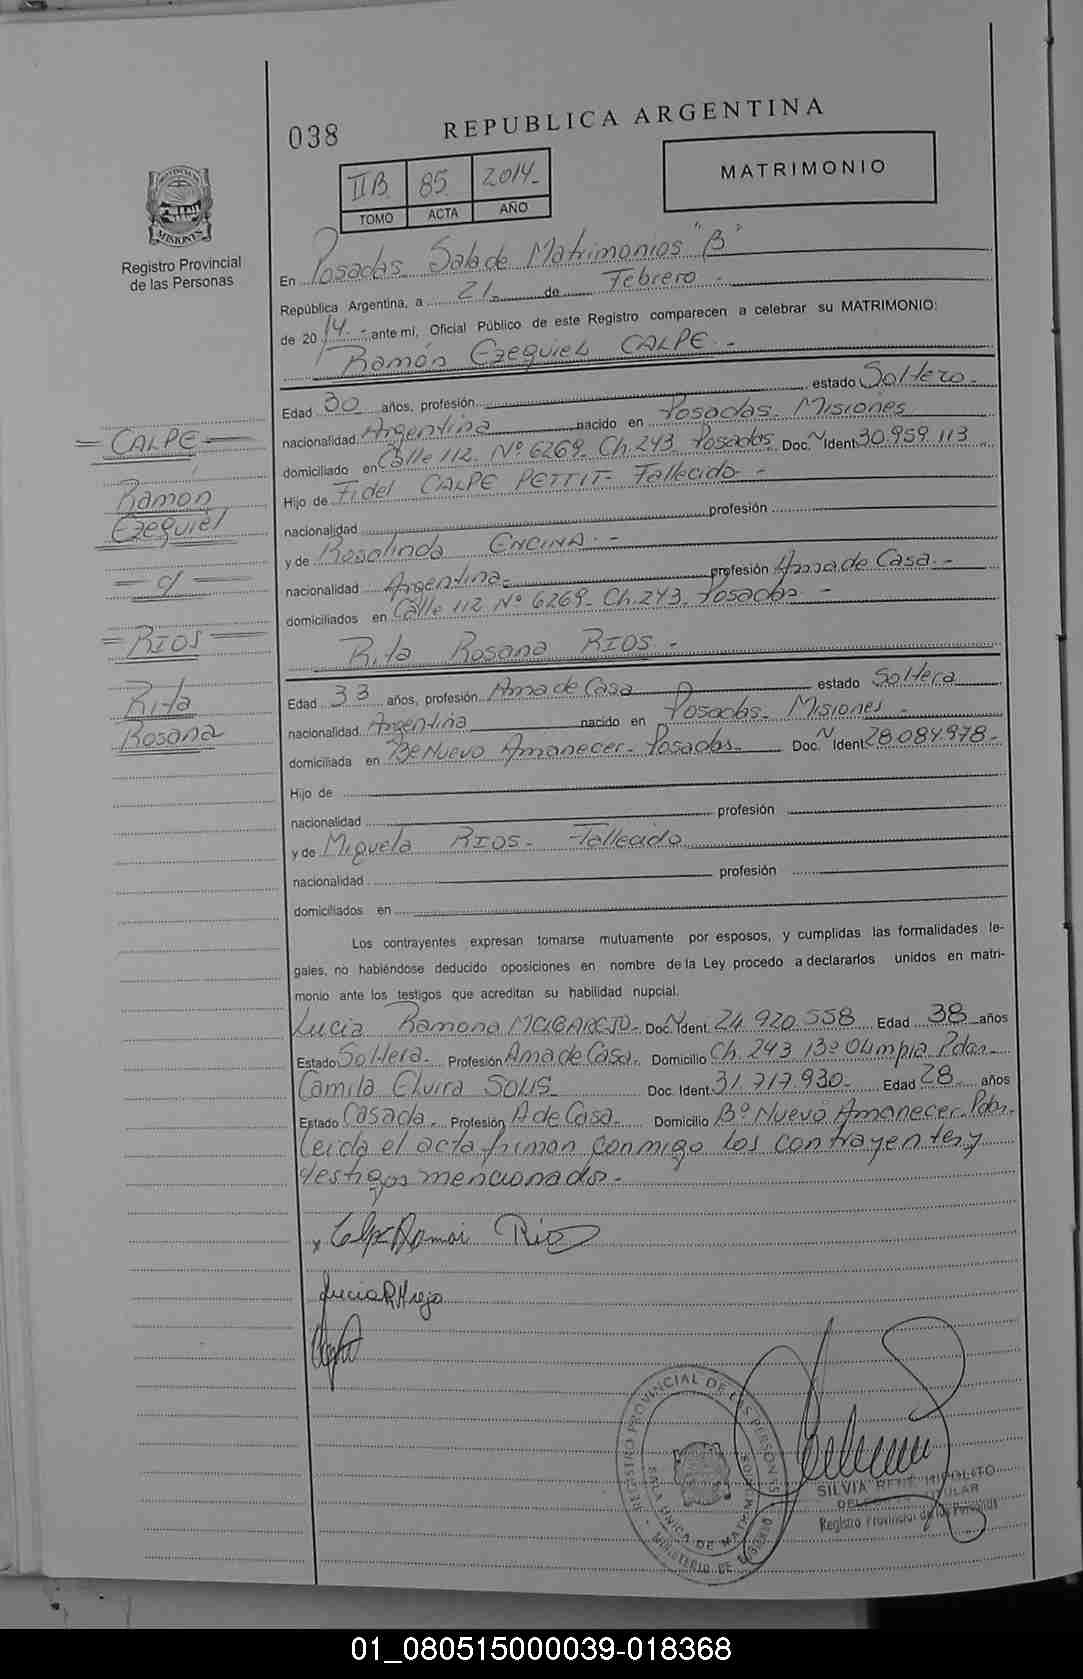 038
REPUBLICA ARGENTINA
IIB 85 2014.-
TOMO ACTA AÑO
MATRIMONIO
PROVINCIA DE
MISIONES
Registro Provincial
de las Personas
En Posadas Sala de Matrimonios "B"
República Argentina, a 21 de Febrero.-
de 2014.- ante mí, Oficial Público de este Registro comparecen a celebrar su MATRIMONIO:
Ramón Ezequiel CALPE.-
Edad 30 años, profesión estado Soltero.-
nacionalidad Argentina nacido en Posadas. Misiones
domiciliado en Calle 112. Nº 6269. Ch. 243. Posadas. Doc. N Ident. 30.959.113
Hijo de Fidel CALPE PETTIT- Fallecido.-
nacionalidad profesión
y de Rosalinda ENCINA.-
nacionalidad Argentina.- profesión Ama de Casa.-
domiciliados en Calle 112 Nº 6269. Ch. 243. Posadas.-
Rita Rosana RIOS.-
Edad 33 años, profesión Ama de Casa estado Soltera
nacionalidad Argentina nacido en Posadas. Misiones.-
domiciliada en Bº Nuevo Amanecer. Posadas. Doc. N Ident. 28.084.978.-
Hijo de
nacionalidad profesión
y de Miguela RIOS.- Fallecido
nacionalidad profesión
domiciliados en
Los contrayentes expresan tomarse mutuamente por esposos, y cumplidas las formalidades le-
gales, no habiéndose deducido oposiciones en nombre de la Ley procedo a declararlos unidos en matri-
monio ante los testigos que acreditan su habilidad nupcial.
Lucia Ramona Doc. N Ident. 24.920.558 Edad 38 años
Estado Soltera. Profesión Ama de Casa. Domicilio Ch. 243 Bº Olimpia Pdas.-
Camila Elvira SOLIS Doc. Ident. 31.717.930.- Edad 28 años
Estado Casada. Profesión A de Casa. Domicilio Bº Nuevo Amanecer. Pdas.
Leida el acta firman conmigo los contrayentes y
testigos mencionados.-
= CALPE =
Ramon
Ezequiel
= c/ =
= RIOS =
Rita
Rosana
x Calpe Ramon Rios
Lucia R.
REGISTRO PROVINCIAL DE LAS PERSONAS
SALA UNICA DE MATRIMONIOS
MINISTERIO DE GOBIERNO
SILVIA RENE HIPOLITO
DELEGADA TITULAR
Registro Provincial de las Personas
01_080515000039-018368